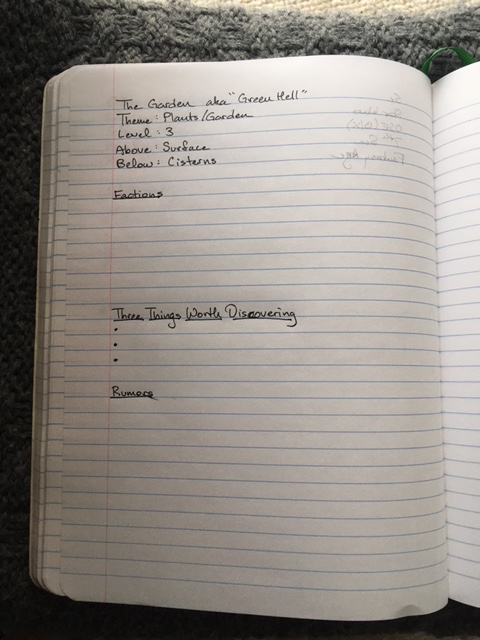 The Garden aka "Green Hell"
Theme: Plants/Garden
Level: 3
Above: Surface
Below: Cisterns
Factions
Three Things Worth Discovering
•
•
•
Rumors